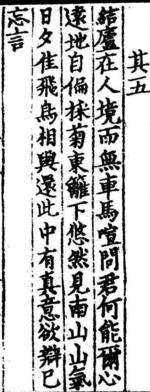 其五
結廬在人境而無車馬喧問君何能爾心
遠地自偏採菊東籬下悠然見南山山氣
日夕佳飛鳥相與還此中有真意欲辯已
忘言